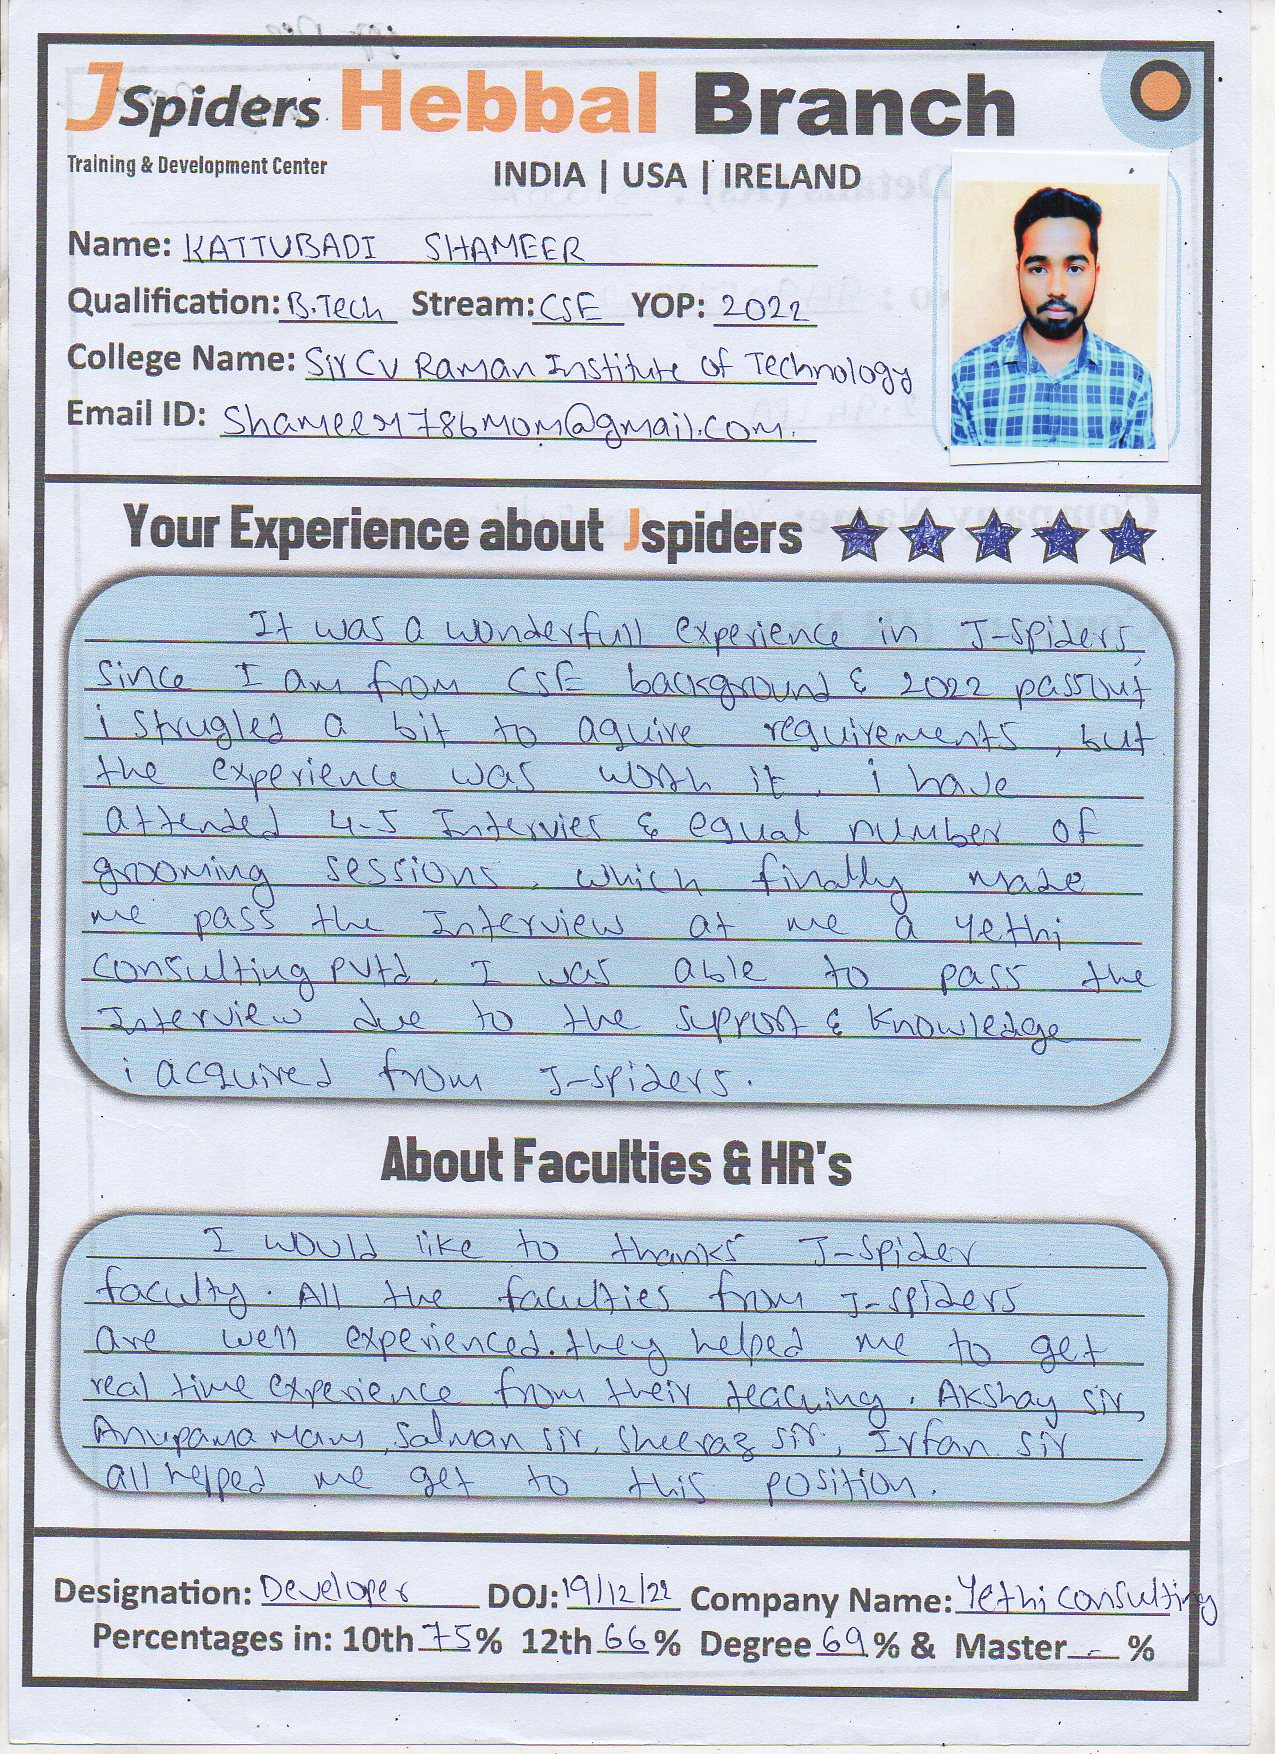 JSpiders Hebbal Branch
Training & Development Center
INDIA | USA | IRELAND
Name: KATTUBADI SHAMEER
Qualification: B.Tech Stream: CSE YOP: 2022
College Name: Sir CV Raman Institute of Technology
Email ID: Shameer786mom@gmail.com.
Your Experience about Jspiders
It was a wonderfull experience in J-Spiders,
Since I am from CSE background & 2022 passout
i strugled a bit to aquire requirements, but
the experience was worth it, i have
attended 4-5 Intervies & equal number of
grooming sessions, which finally made
me pass the Interview at me a Yethi
Consulting pvtd. I was able to pass the
Interview due to the support & Knowledge
i acquired from J-Spiders.
About Faculties & HR's
I would like to thanks J-Spider
faculty. All the faculties from J-spiders
are well experienced. they helped me to get
real time experience from their teaching. Akshay sir,
Anupama Mam, Salman sir, Sheeraz sir, Irfan sir
all helped me get to this position.
Designation: Developer DOJ: 19/12/22 Company Name: Yethi Consulting
Percentages in: 10th 75% 12th 66% Degree 69% & Master - %